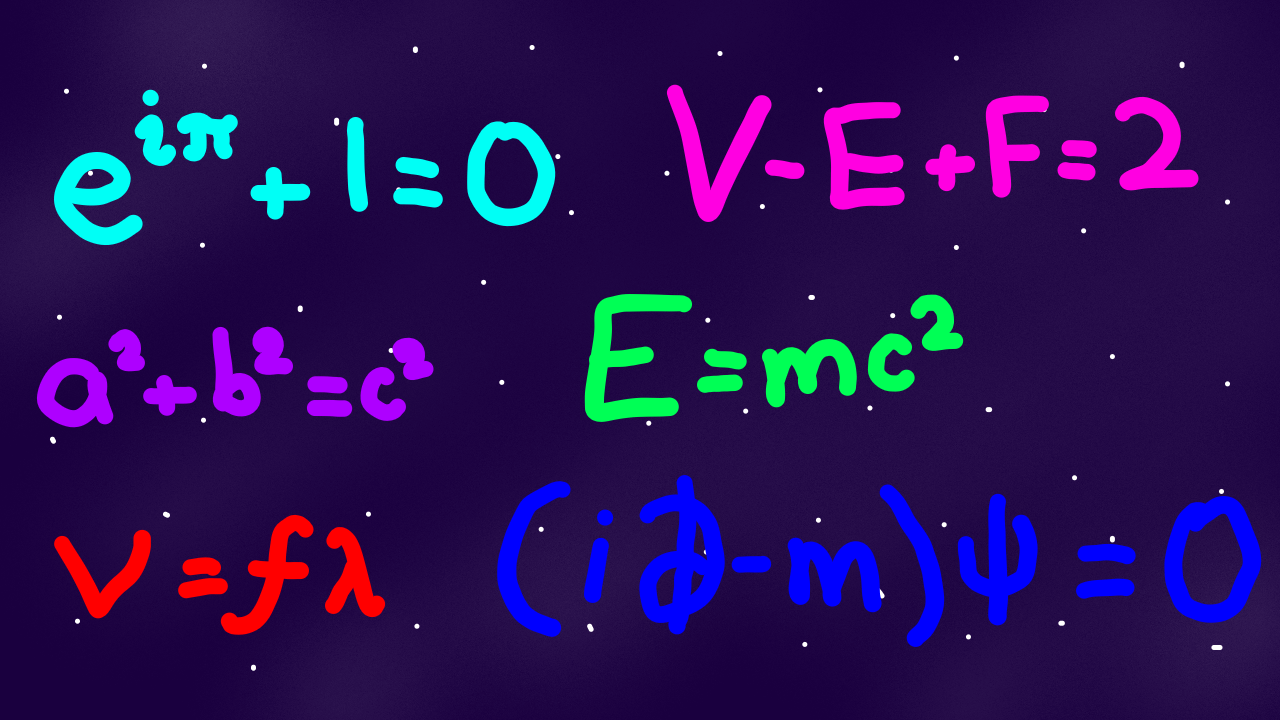 e^{iπ} + 1 = 0
V - E + F = 2
a² + b² = c²
E = mc²
v = fλ
(i∂̸ - m)ψ = 0